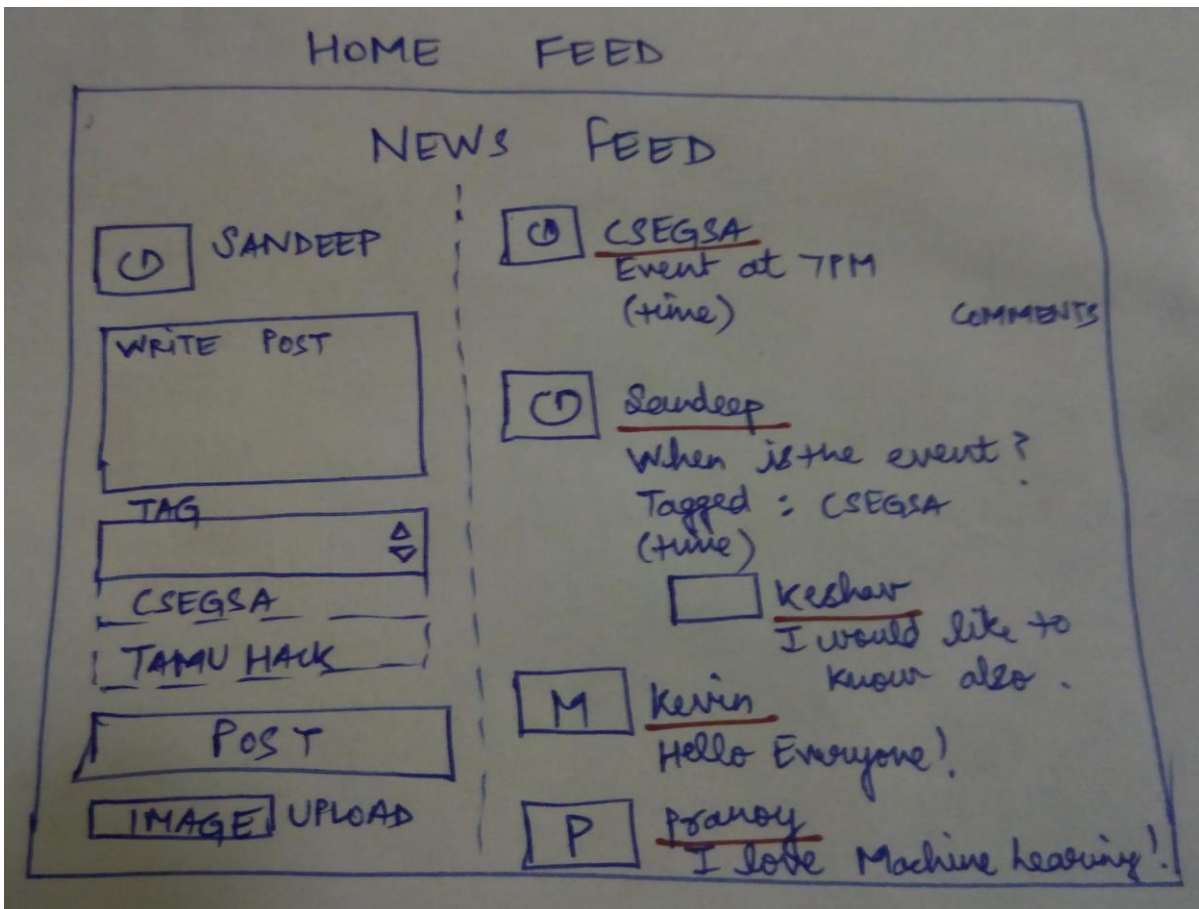 HOME FEED
NEWS FEED
SANDEEP
WRITE POST
TAG
CSEGSA
TAMU HACK
POST
IMAGE UPLOAD
CSEGSA
Event at 7PM
(time)
COMMENTS
Sandeep
When is the event?
Tagged : CSEGSA
(time)
Keshav
I would like to
know also.
M
Kevin
Hello Everyone!
P
Pranoy
I love Machine Learning!